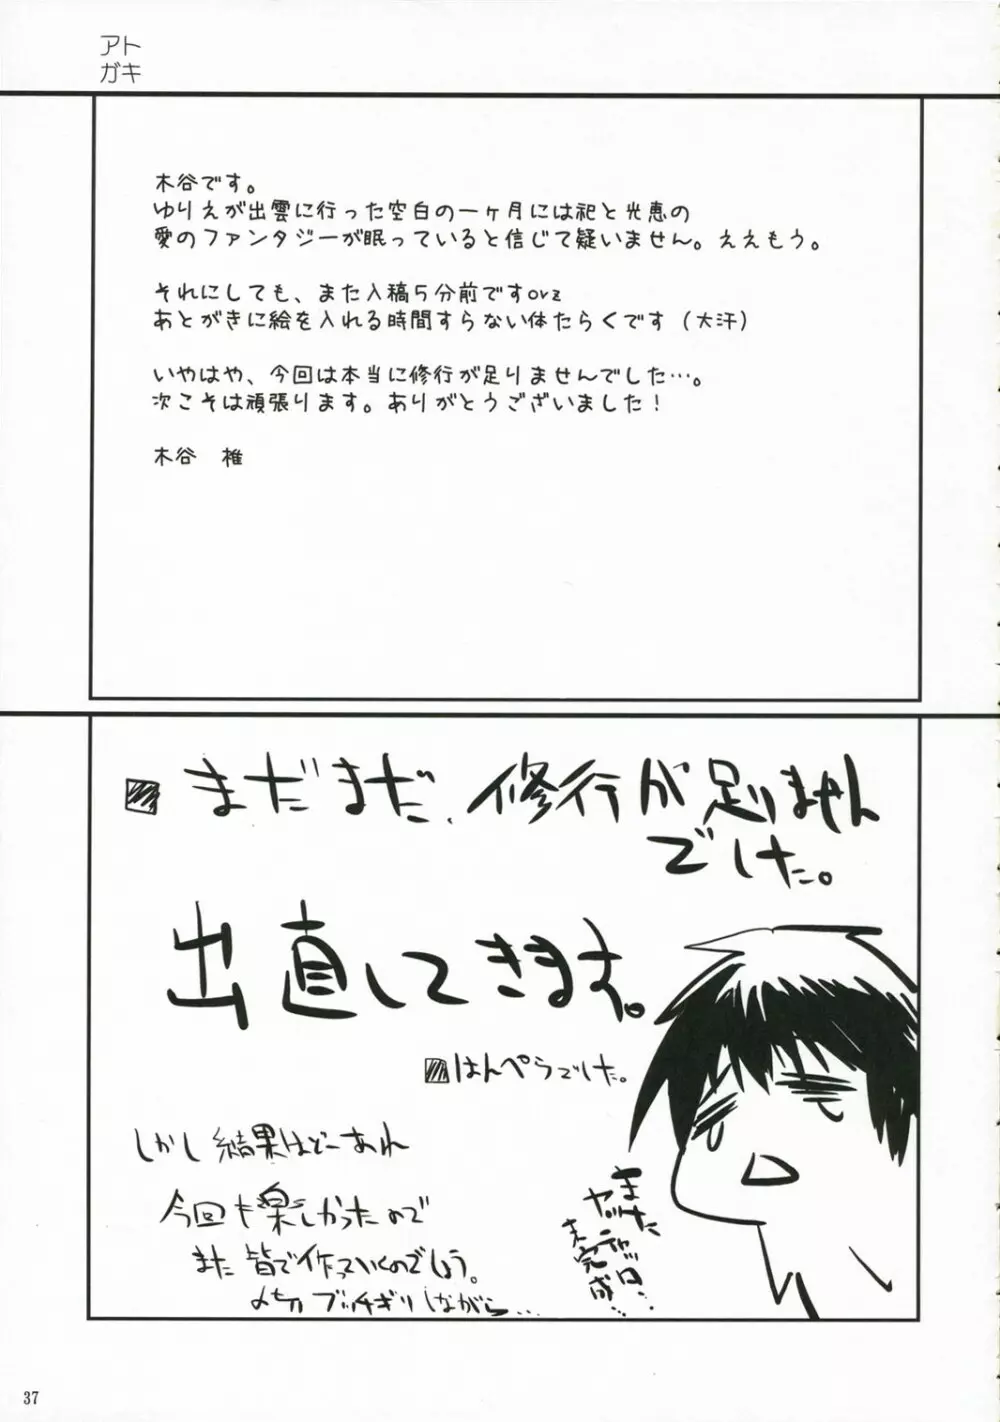 アト
ガキ
木谷です。
ゆりえが出雲に行った空白の一ヶ月には祀と光恵の
愛のファンタジーが眠っていると信じて疑いません。ええもう。
それにしても、また入稿5分前ですorz
あとがきに絵を入れる時間すらない体たらくです（大汗）
いやはや、今回は本当に修行が足りませんでした…。
次こそは頑張ります。ありがとうございました！
木谷　椎
まだまだ、修行が足りません
でした。
出直してきます。
はんぺらでした。
しかし結果はどーあれ
今回も楽しかったので
また皆で作っていくのでしょう。
〆切ブッチギリしながら…
また
ヤッ
未完成…
37